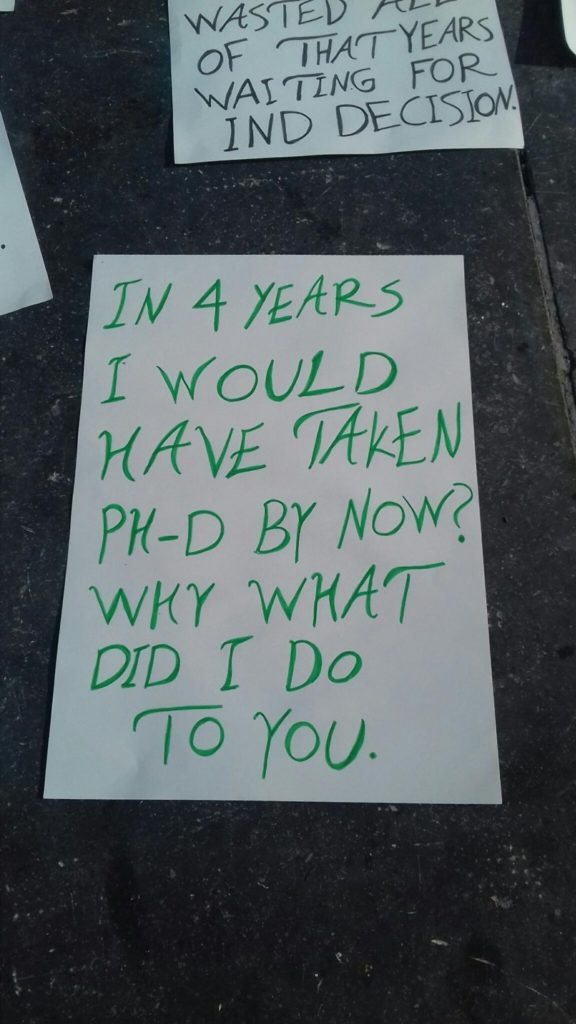 WASTED ALL
OF THAT YEARS
WAITING FOR
IND DECISION.
IN 4 YEARS
I WOULD
HAVE TAKEN
PH-D BY NOW?
WHY WHAT
DID I DO
TO YOU.